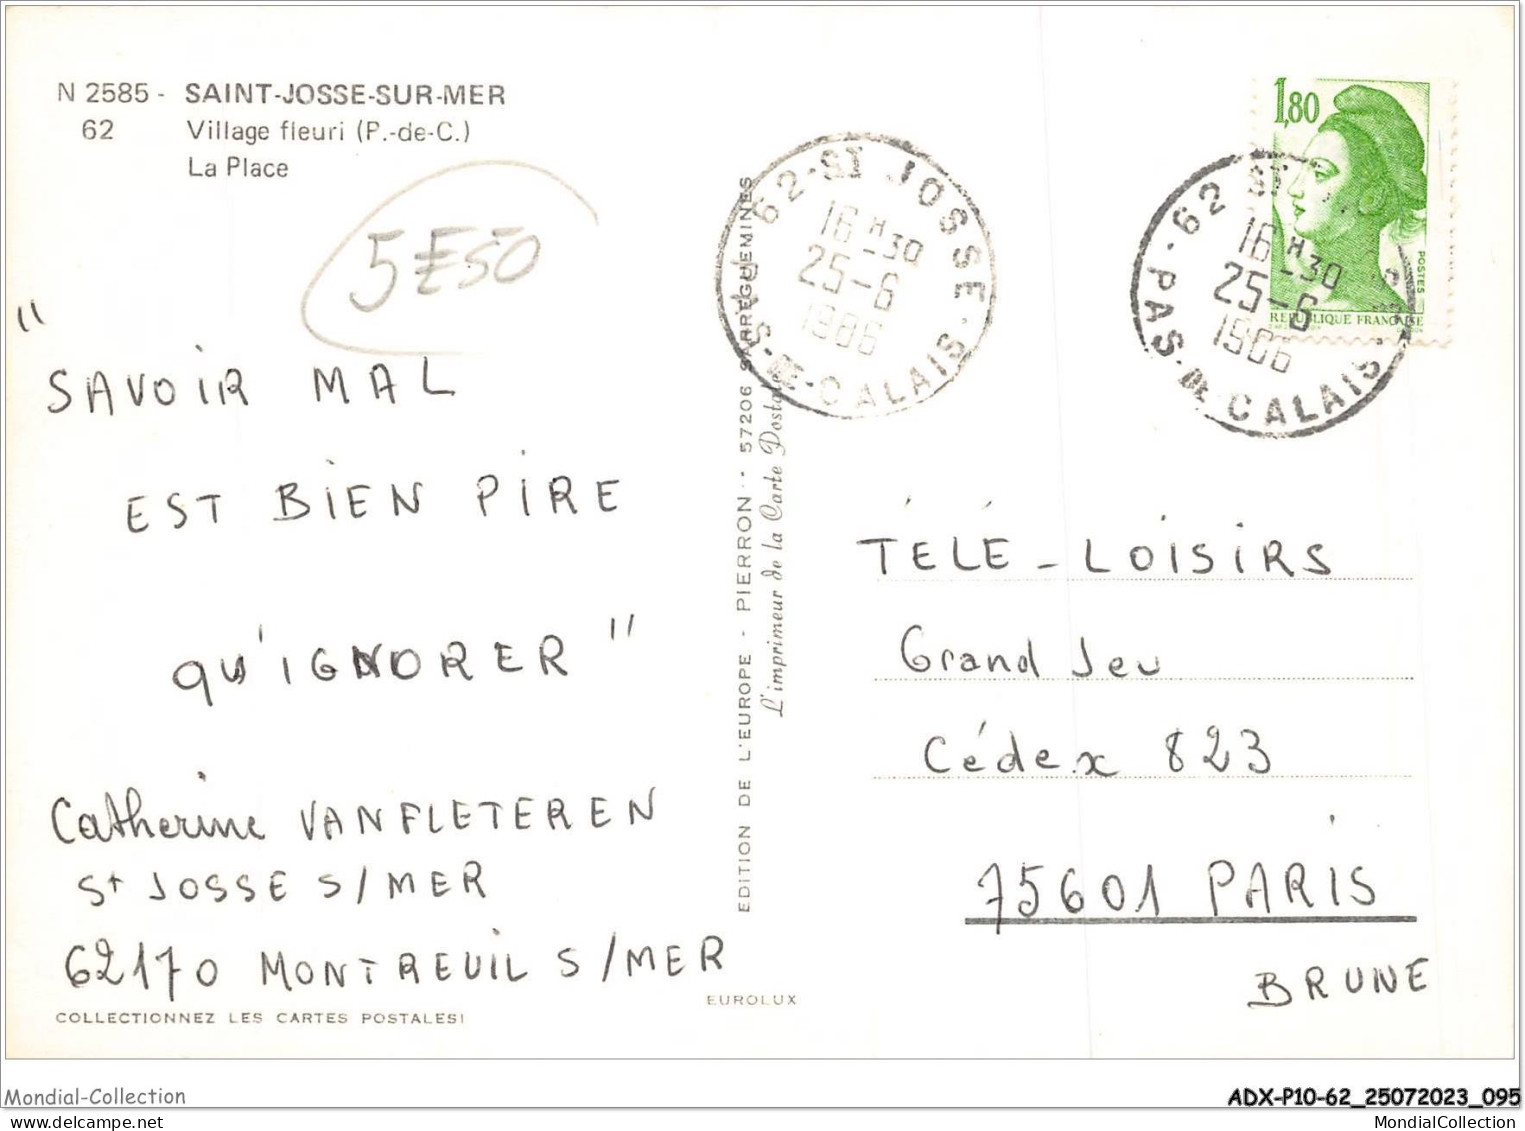 N 2585 - SAINT-JOSSE-SUR-MER
62 Village fleuri (P.-de-C.)
La Place
5E50
" SAVOIR MAL
EST BIEN PIRE
QU'IGNORER "
Catherine VANFLETEREN
St JOSSE S/MER
62170 MONTREUIL S/MER
COLLECTIONNEZ LES CARTES POSTALES!
EDITION DE L'EUROPE - PIERRON - 57206 SARREGUEMINES
L'imprimeur de la Carte Postale
EUROLUX
62-ST JOSSE
16 H -30
25-6
1986
PAS-DE-CALAIS
1,80
POSTES
REPUBLIQUE FRANÇAISE
62 ST JOSSE
16 H -30
25-6
1986
PAS-DE-CALAIS
TÉLÉ-LOISIRS
Grand Jeu
Cédex 823
75601 PARIS
BRUNE
Mondial-Collection
ADX-P10-62_25072023_095
MondialCollection